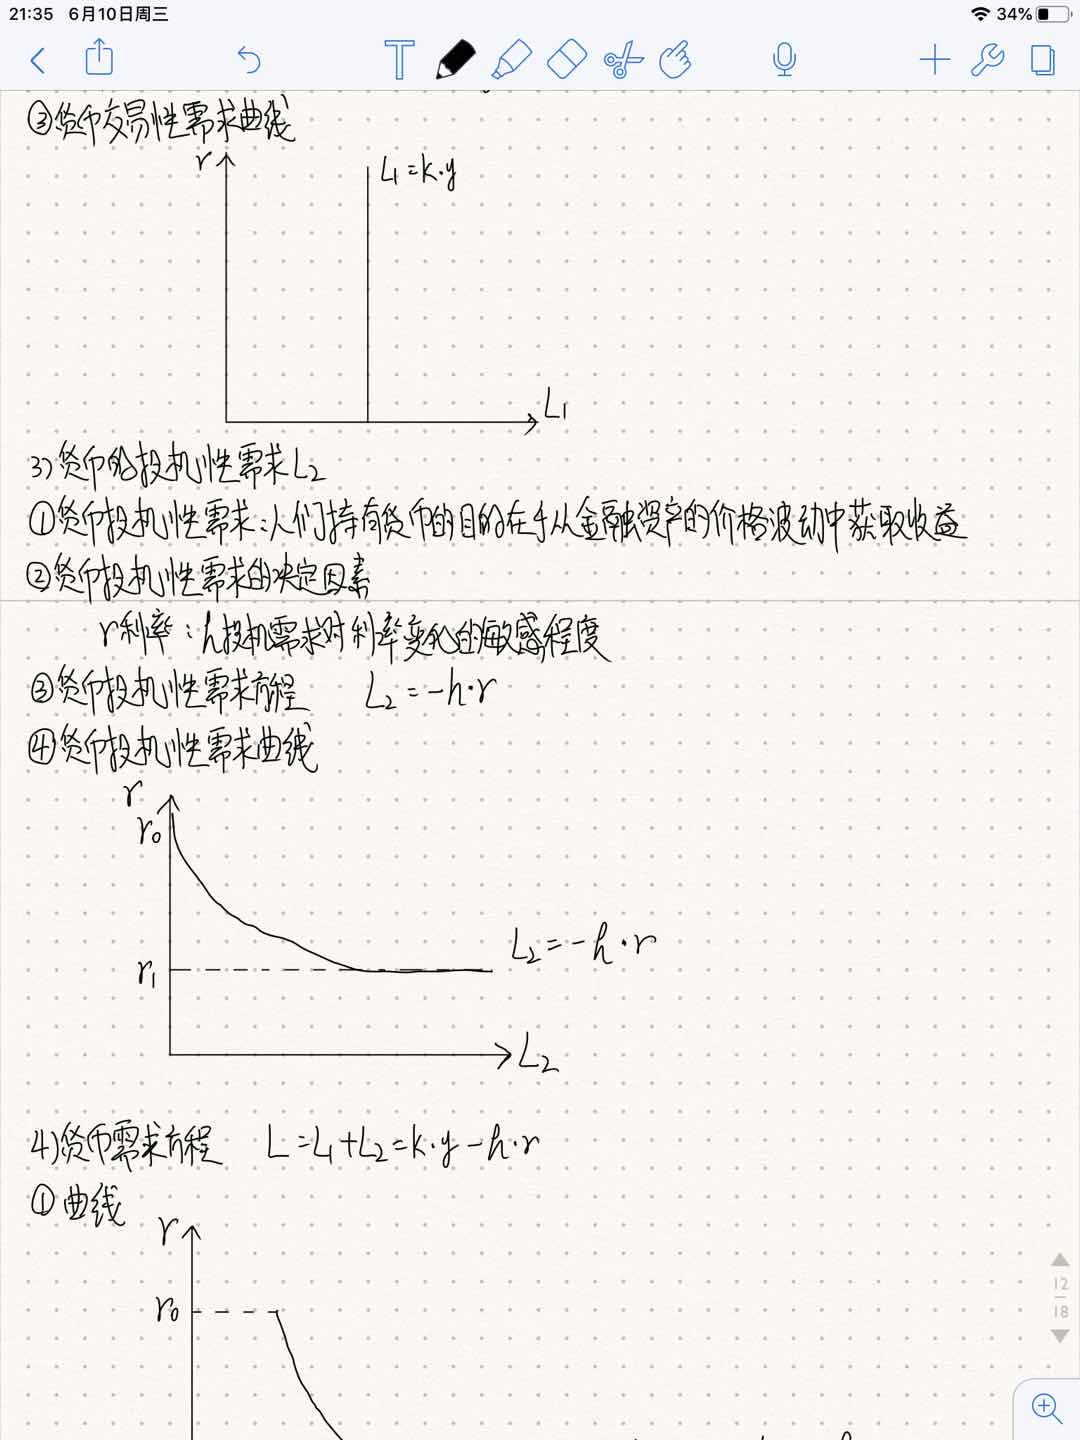 21:35 6月10日周三
34%
③货币交易性需求曲线
r
L₁=k·y
L₁
3)货币的投机性需求L₂
①货币投机性需求:人们持有货币的目的在于从金融资产的价格波动中获取收益
②货币投机性需求的决定因素
r利率:h投机需求对利率变化的敏感程度
③货币投机性需求方程 L₂=-h·r
④货币投机性需求曲线
r
r₀
L₂=-h·r
r₁
L₂
4)货币需求方程 L=L₁+L₂=k·y-h·r
①曲线
r
r₀
12
18